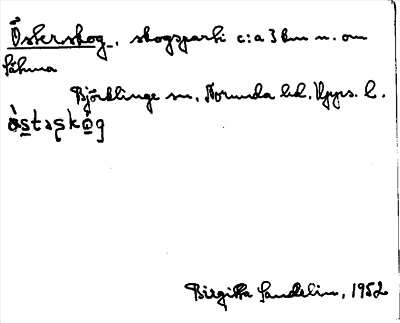 Österskog, skogsparti c:a 3 km n. om
Sätuna
Björklinge sn, Norunda hd, Upps. l.
ὰstəʂkɷ̀g
Birgitta Sandelin, 1952